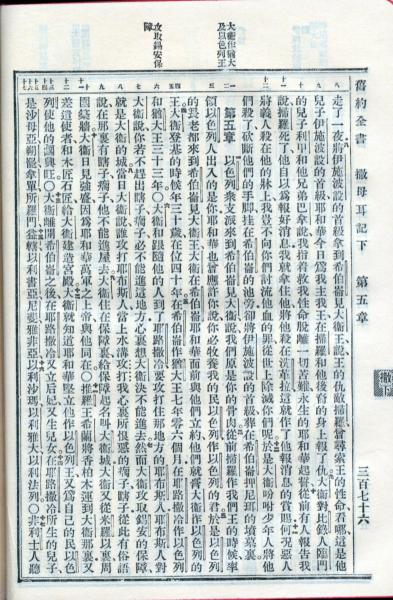 舊約全書 撒母耳記下 第五章
三百七十六
撒下
大衛作猶大
及以色列王
攻取錫安保
障
走了一夜將伊施波設的首級拿到希伯崙見大衛王說王的仇敵掃羅曾尋索王的性命看哪這是他
兒子伊施波設的首級耶和華今日為我主我王在掃羅和他後裔的身上報了仇大衛對比錄人臨門
的兒子利甲和他兄弟巴拿說我指着救我性命脫離一切苦難永生的耶和華起誓從前有人報告我
說掃羅死了他自以為報好消息我就拿住他將他殺在洗革拉這就作了他報消息的賞賜何況惡人
將義人殺在他的牀上我豈不向你們討流他血的罪從世上除滅你們呢於是大衛吩咐少年人將他
們殺了砍斷他們的手脚挂在希伯崙的池旁卻將伊施波設的首級葬在希伯崙押尼珥的墳墓裏
第五章 以色列衆支派來到希伯崙見大衛說我們原是你的骨肉從前掃羅作我們王的時候率
領以色列人出入的是你耶和華也曾應許你說你必牧養我的民以色列作以色列的君於是以色列
的長老都來到希伯崙見大衛王大衛在希伯崙耶和華面前與他們立約他們就膏大衛作以色列的
王大衛登基的時候年三十歲在位四十年在希伯崙作猶大王七年零六個月在耶路撒冷作以色列
和猶大王三十三年○大衛和跟隨他的人到了耶路撒冷要攻打住那地方的耶布斯人耶布斯人對
大衛說你若不趕出瞎子瘸子必不能進這地方心裏想大衛決不能進去然而大衛攻取錫安的保障
就是大衛的城當日大衛說誰攻打耶布斯人當上水溝攻打我心裏所恨惡的瘸子瞎子從此有俗語
說在那裏有瞎子瘸子他不能進屋去大衛住在保障裏給保障起名叫大衛城大衛又從米羅以裏周
圍築牆大衛日見強盛因為耶和華萬軍之上帝與他同在○推羅王希蘭將香柏木運到大衛那裏又
差遣使者和木匠石匠給大衛建造宮殿大衛就知道耶和華堅立他作以色列王又為自己的民以色
列使他的國興旺○大衛離開希伯崙之後在耶路撒冷又立后妃又生兒女在耶路撒冷所生的兒子
是沙母亞朔罷拿單所羅門益轄以利書亞尼斐雅非亞以利沙瑪以利雅大以利法列○非利士人聽